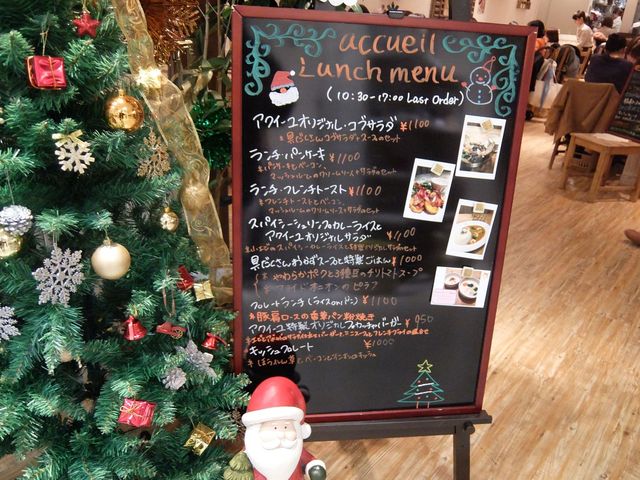 accueil
Lunch menu
(10:30-17:00 Last Order)
アクイーユオリジナル・コブサラダ ¥1100
ランチ・パンケーキ ¥1100
ランチ・フレンチトースト ¥1100
スパイシーシュリンプカレーライスと
アクイーユオリジナルサラダ ¥1100
具だくさんおかずスープと特製ごはん ¥1000
やわらかポークと3種豆のチリトマトスープ
フライドオニオンのピラフ
プレートランチ(ライスorパン) ¥1100
*豚肩ロースの香草パン粉焼き
アクイーユ特製オリジナルフォカッチャバーガー ¥950
キッシュプレート ¥1000